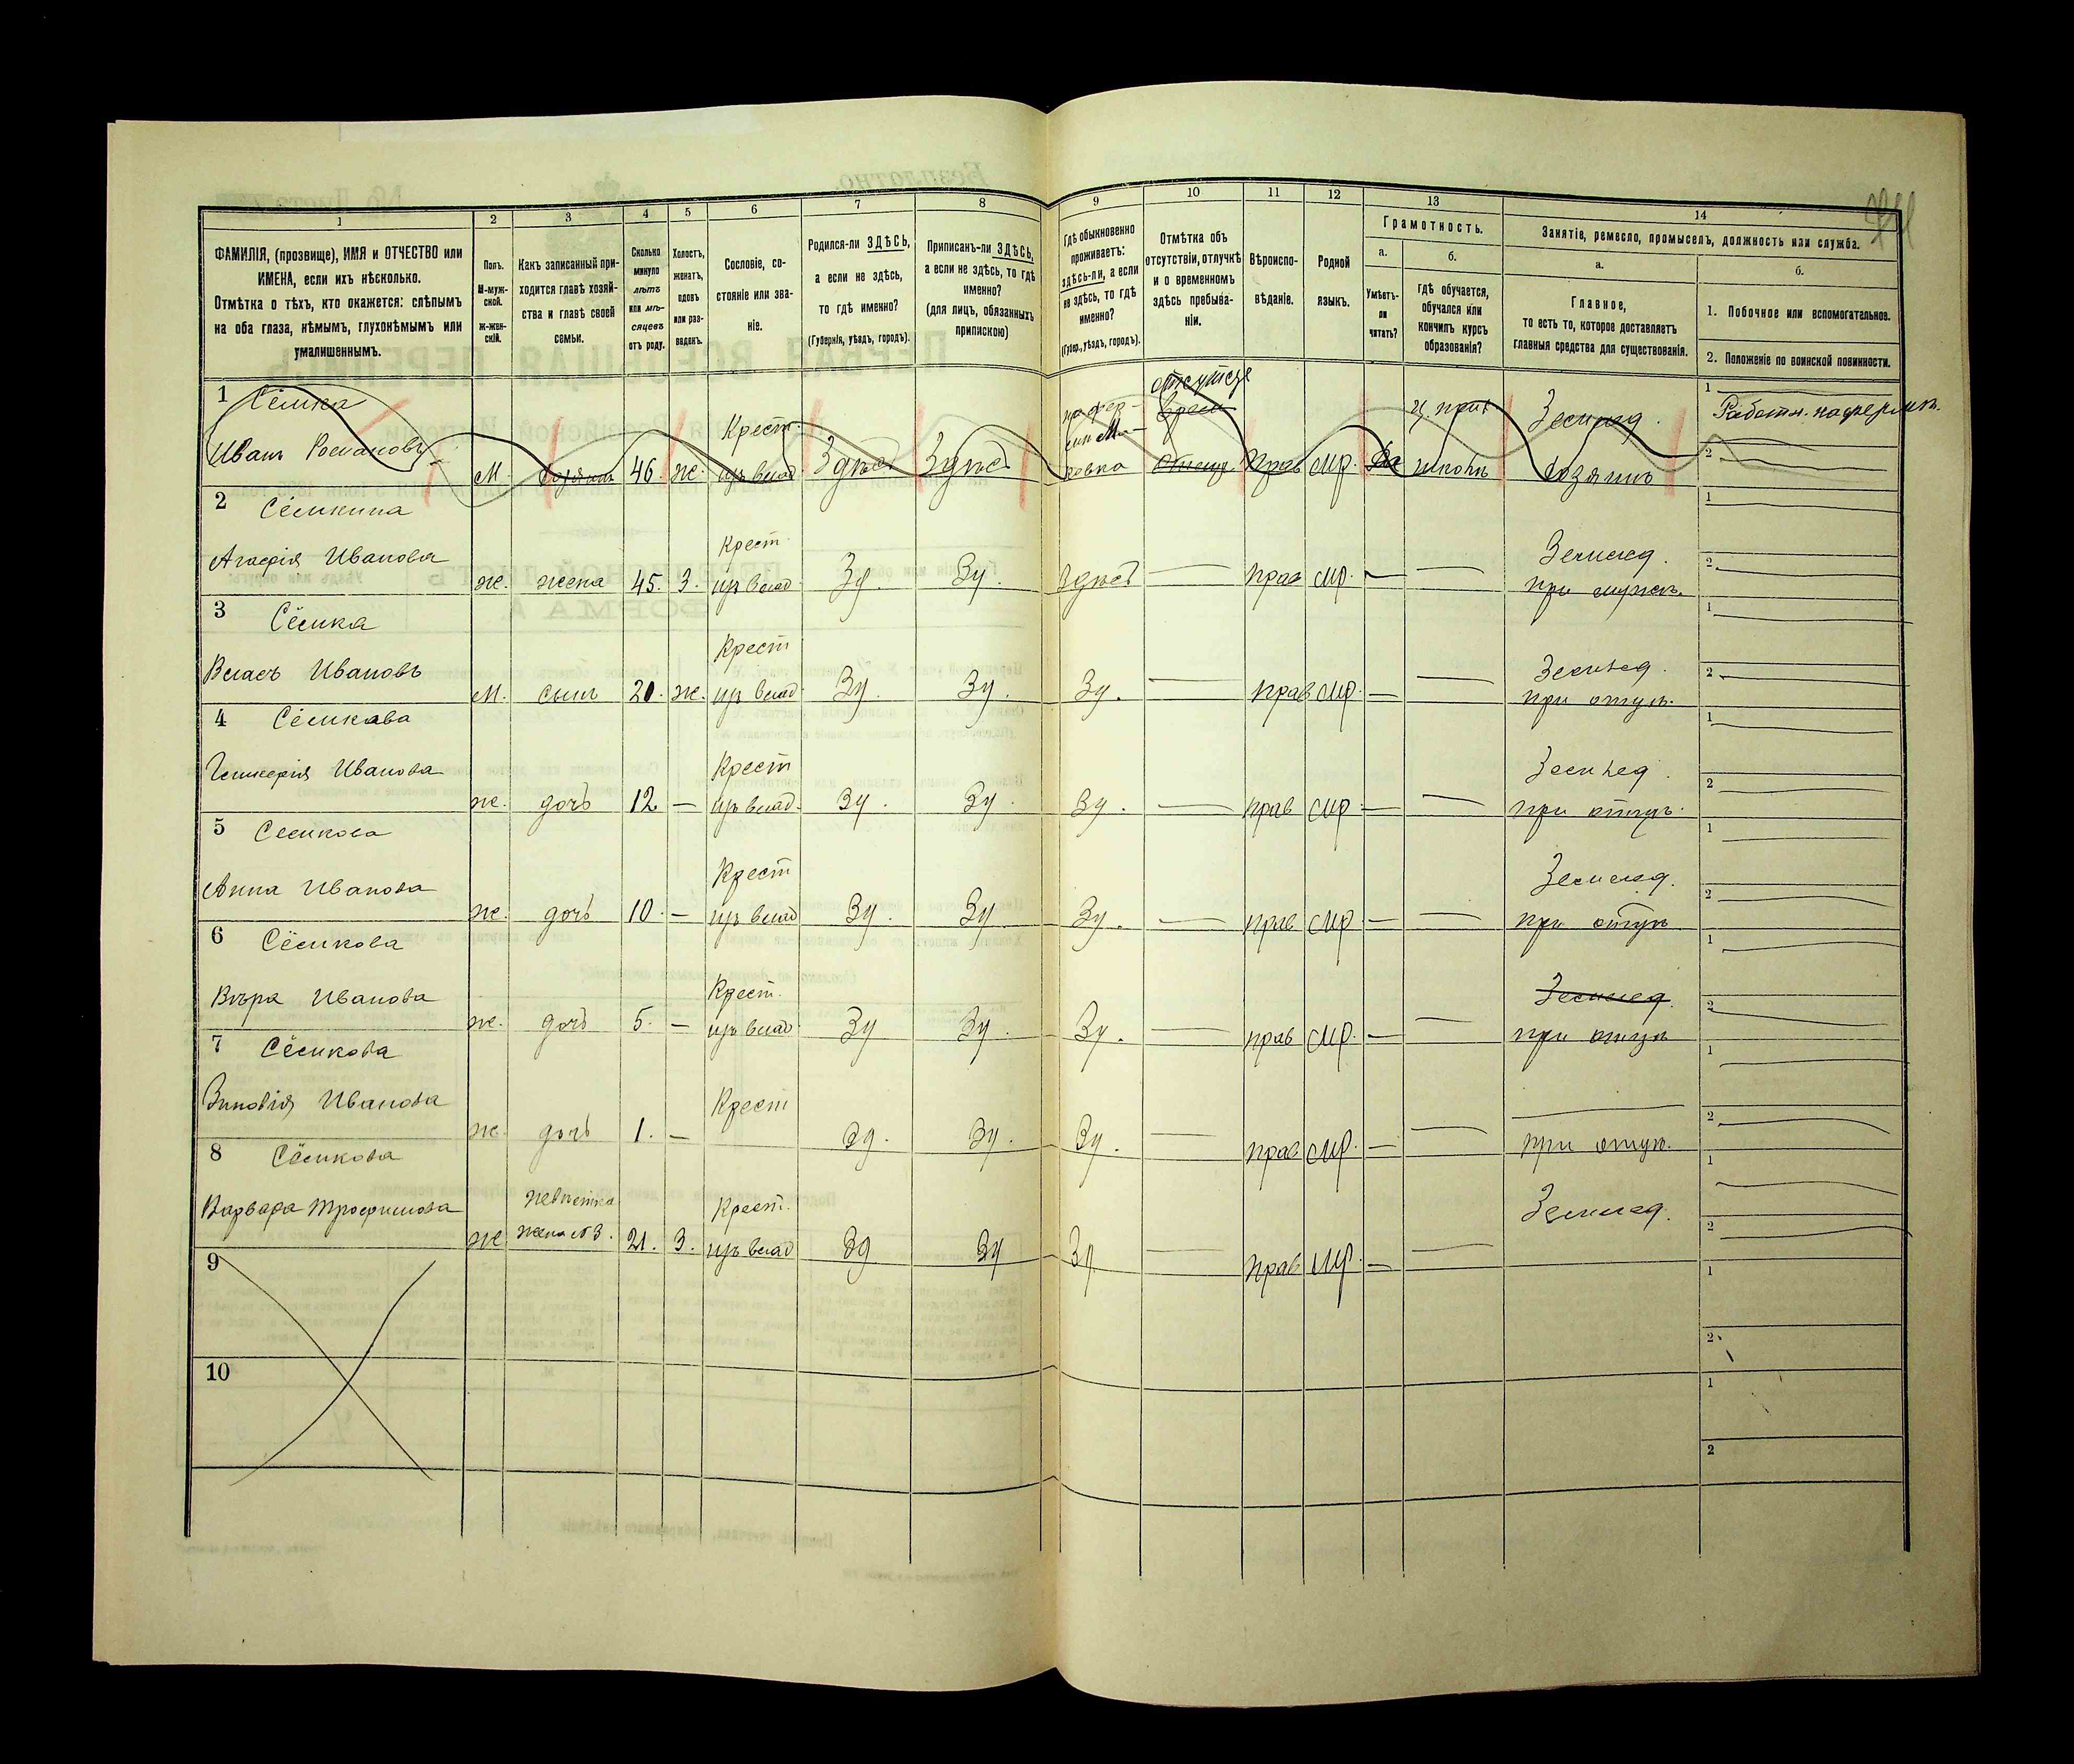 1
2
3
4
5
6
7
8
9
10
11
12
13
14
ФАМИЛІЯ, (прозвище), ИМЯ и ОТЧЕСТВО или
ИМЕНА, если ихъ нѣсколько.
Отмѣтка о тѣхъ, кто окажется: слѣпымъ
на оба глаза, нѣмымъ, глухонѣмымъ или
умалишеннымъ.
Полъ.
М-муж-
ской.
Ж-жен-
скій.
Какъ записанный при-
ходится главѣ хозяй-
ства и главѣ своей
семьи.
Сколько
минуло
лѣтъ
или мѣ-
сяцевъ
отъ роду.
Холостъ,
женатъ,
вдовъ
или раз-
веденъ.
Сословіе, со-
стояніе или зва-
ніе.
Родился-ли ЗДѢСЬ,
а если не здѣсь,
то гдѣ именно?
(Губернія, уѣздъ, городъ).
Приписанъ-ли ЗДѢСЬ,
а если не здѣсь, то гдѣ
именно?
(для лицъ, обязанныхъ
припискою)
Гдѣ обыкновенно
проживаетъ:
здѣсь-ли, а если
не здѣсь, то гдѣ
именно?
(Губер., уѣздъ, городъ).
Отмѣтка объ
отсутствіи, отлучкѣ
и о временномъ
здѣсь пребыва-
ніи.
Вѣроиспо-
вѣданіе.
Родной
языкъ.
Грамотность.
а.
Умѣетъ-
ли
читать?
б.
гдѣ обучается,
обучался или
кончилъ курсъ
образованія?
Занятіе, ремесло, промыселъ, должность или служба.
а.
Главное,
то есть то, которое доставляетъ
главныя средства для существованія.
б.
1. Побочное или вспомогательное.
2. Положеніе по воинской повинности.
1 Сёмка
Крест.
Земляд.
1
Иванъ Романовъ
М. хозяинъ 46. ж. изъ влад. Здѣсь Здѣсь
прав. мр. Да школѣ хозяинъ
2
2 Сёмкина
Крест.
Земляд.
1
Агафія Иванова
ж. жена 45. З. изъ влад. Зд. Зд. Здѣсь — прав. мр. — — при мужѣ.
2
3 Сёмка
Крест
Земляд.
1
Власъ Ивановъ
М. сынъ 20. ж. изъ влад. Зд. Зд. Зд. — прав мр. — — при отцѣ.
2
4 Сёмкава
Крест
Земляд.
1
Гликерія Иванова
ж. дочь 12 — изъ влад. Зд. Зд. Зд. — прав мр — — при отцѣ.
2
5 Семкова
Крест
Земляд.
1
Анна Иванова
ж. дочь 10. — изъ влад Зд. Зд Зд. — прав мр — — при отцѣ
2
6 Сёмкова
Крест.
Земляд.
1
Вѣра Иванова
ж. дочь 5. — изъ влад. Зд Зд. Зд. — прав мр. — — при отцѣ
2
7 Сёмкова
Крест
1
Зиновія Иванова
ж. дочь 1. — Зд. Зд. Зд. — прав мр. — — при отцѣ.
2
8 Сёмкова
невѣстка
Крест.
Земляд.
1
Варвара Трофимова
ж жена №3. 21. З. изъ влад Зд Зд Зд — прав мр. — —
2
9
1
2
10
1
2